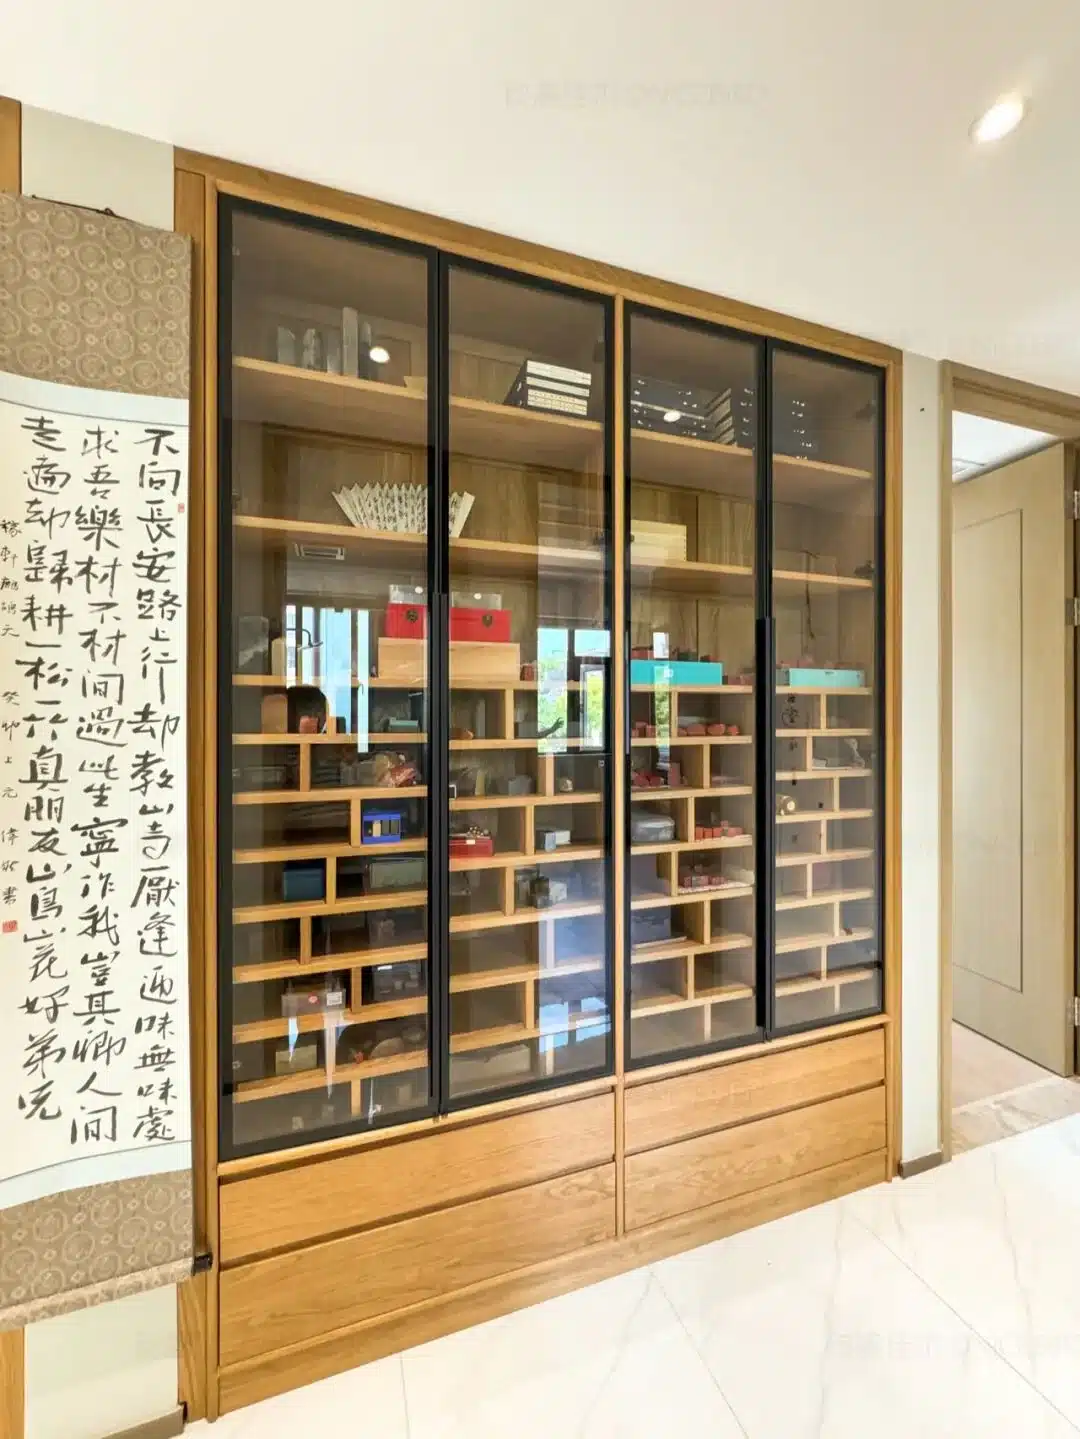 不向長安路上行却教山寺厭逢迎味無味處
求吾樂材不材間過此生寧作我豈其卿人間
走遍却歸耕一松一竹真朋友山鳥山花好弟兄
稼軒鷓鴣天 癸卯上元 偉書